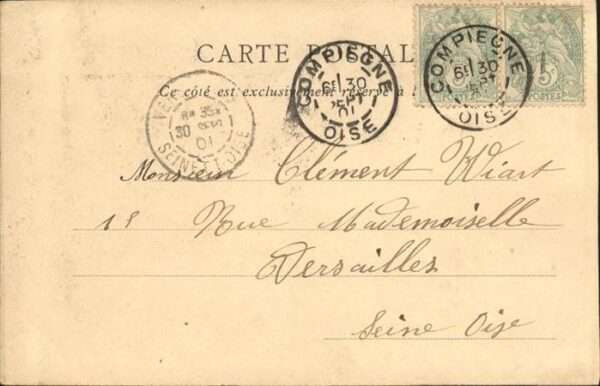 CARTE POSTALE
Ce côté est exclusivement réservé à l
COMPIEGNE
6E 30
SEPT
01
OISE
COMPIEGNE
6E 30
SEPT
01
OISE
VE
8E 35
30 SEPT
01
SEINE-ET-OISE
5
POSTES
Monsieur Clément Wiart
15 Rue Mademoiselle
Versailles
Seine Oise